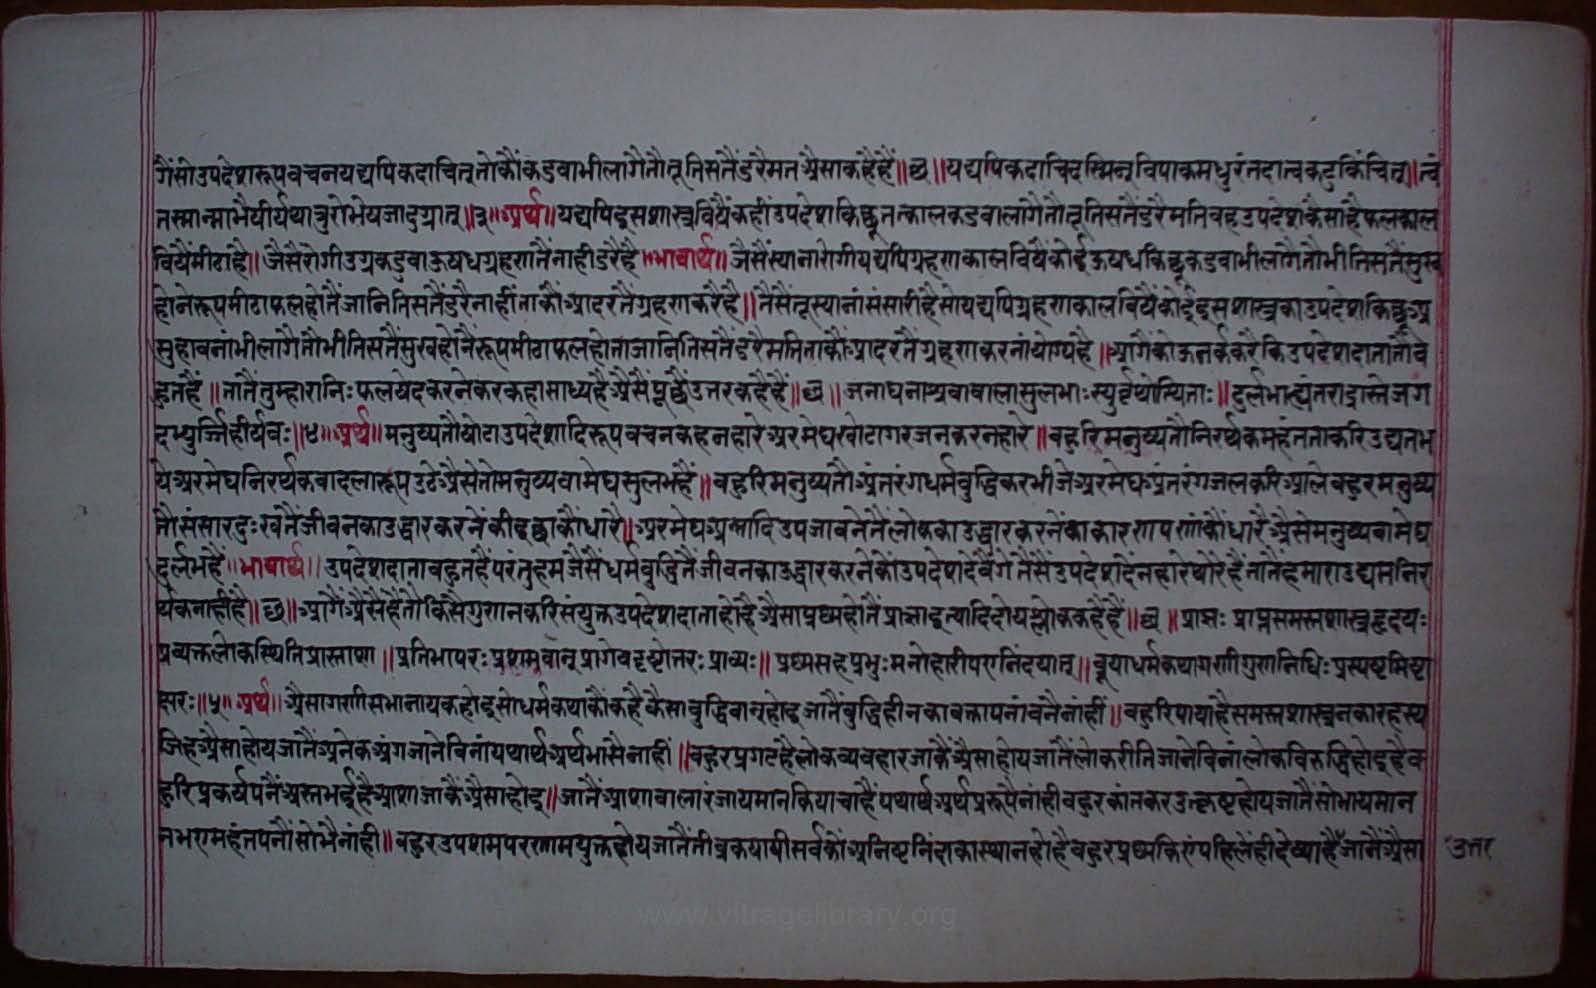 गैंसोउपदेशरूपवचनयद्यपिकदाचित्तोकौंकडवाभीलागैतौतूतिसतैंडरैमतऐसाकहैहैं॥छ॥यद्यपिकदाचिदस्मिन्विपाकमधुरंतदात्वकटुकिंचित्॥त्वं
तस्मान्माभैषीर्यथातुरोभेषजादुग्रात्॥३॥अर्थ॥यद्यपिइसशास्त्रविषैंकहींउपदेशकिछूतत्कालकडवालागैतौतूतिसतैंडरैमतिवहउपदेशकैसाहैफलकाल
विषैंमीठाहै॥जैसैरोगीउग्रकडुवाऊषधग्रहणतैंनाहीडरैहै॥भावार्थ॥जैसैंस्यानारोगीयद्यपिग्रहणकालविषैंकोईऊषधकिछूकडवाभीलागैतौभीतिसतैंसुख
होनेरूपमीठाफलहोतैंजानितिसतैंडरैनाहींताकौंआदरतैंग्रहणकरैहै॥तैसैंतूस्यानांसंसारीहैसोयद्यपिग्रहणकालविषैंकोईइसशास्त्रकाउपदेशकिछुअ
सुहावनांभीलागैतौभीतिसतैंसुखहोनैंरूपमीठाफलहोताजानितिसतैंडरैमतिताकौंआदरतैंग्रहणकरनांयोग्यहै॥आगैंकोऊतर्ककरैकिउपदेशदातातौव
हुतहैं॥तातैंतुम्हारानिःफलषेदकरनेकरकहासाध्यहैऐसैंपूछैंउत्तरकहैहैं॥छ॥जनाघनाश्चवाचालासुलभाःस्युर्वृथोत्थिताः॥दुर्लभाह्यंतरार्द्रास्तेजग
दभ्युर्ज्जिहीर्षवः॥४॥अर्थ॥मनुष्यतौषोटाउपदेशादिरूपवचनकहनहारेअरमेघषोटागरजनकरनहारे॥बहुरिमनुष्यतौनिरर्थकमहंतताकरिउद्यतभ
येअरमेघनिरर्थकवादलारूपउठेऐसेतोमनुष्यवामेघसुलभहैं॥बहुरिमनुष्यतौअंतरंगधर्मबुद्धिकरभीजेअरमेघअंतरंगजलकरिआलेबहुरमनुष्य
तौसंसारदुःखतैंजीवनकाउद्धारकरनेंकीइछाकौंधारै॥अरमेघअन्नादिउपजावनेतैंलोककाउद्धारकरनेंकाकारणपणांकौंधारैऐसेमनुष्यवामेघ
दुर्लभहैं॥भावार्थ॥उपदेशदाताबहुतहैंपरंतुहमजैसैंधर्मबुद्धितैंजीवनकाउद्धारकरनेकोंउपदेशदेवैंगेतैसैंउपदेशदेंनहारेथोरेहैंतातैंहमाराउद्यमनिर
र्थकनाहींहै॥छ॥आगैंऐसैहैंतौकिसैगुणनकरिसंयुक्तउपदेशदाताहोहैऐसाप्रश्नहोतैंप्राज्ञइत्यादिदोयश्लोककहैहैं॥छ॥प्राज्ञःप्राप्तसमस्तशास्त्रहृदयः
प्रव्यक्तलोकस्थितिप्रास्ताशा॥प्रतिभापरःप्रशमवान्प्रागेवदृष्टोत्तरःप्राव्यः॥प्रश्नसहप्रभुःमनोहारीपरानिंदयात्॥ब्रूयाधर्मकथागणीगुणनिधिःप्रस्पष्टमिष्टा
क्षरः॥५॥अर्थ॥ऐसागणीसभानायकहोइसोधर्मकथाकौंकहैकैसाबुद्धिवान्होइजातैंबुद्धिहीनकावक्तापनांवनैंनांहीं॥बहुरिपायाहैसमस्तशास्त्रनकारहस्य
जिहऐसाहोयजातैंअनेकअंगजानेविनांयथार्थअर्थभासैनाहीं॥बहुरप्रगटहैलोकव्यवहारजाकैंऐसाहोयजातैंलोकरीतिजानेविनांलोकविरुद्धिहोइहैव
हुरिप्रकर्षपनैंअस्तभईहैआशाजाकैंऐसाहोइ॥जातैंआशावालारंजायमानकियाचाहैंयथार्थअर्थप्ररूपैनांहीबहुरकांतकरउत्कृष्टहोयजातैंसोभायमान
नभएमहंतपनौंसोभैनांही॥बहुरउपशमपरणामयुक्तहोयजातैंतीव्रकषायीसर्वकौंअनिष्टनिंदाकास्थानहोहैबहुरप्रश्नकिएंपहिलेंहीदेष्याहैंजातैंऐसा उत्तर
www.vitragelibrary.org